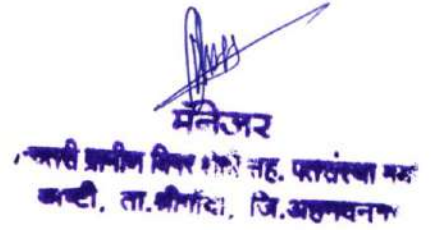 मॅनेजर
ग्रामीण बिगर शेती सह. पतसंस्था
ता.श्रीगोंदा, जि.अहमदनगर